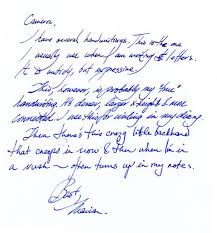 Cameron,
I have several handwritings. This is the one
I usually use when I am writing letters.
It is untidy, but expressive.
This, however, is probably my "true"
handwriting. It's denser, larger & slightly more
connected. I use this for writing in my diary.
Then there's this crazy little backhand
that creeps in now & then when I'm in
a rush — often turns up in my notes.
Best,